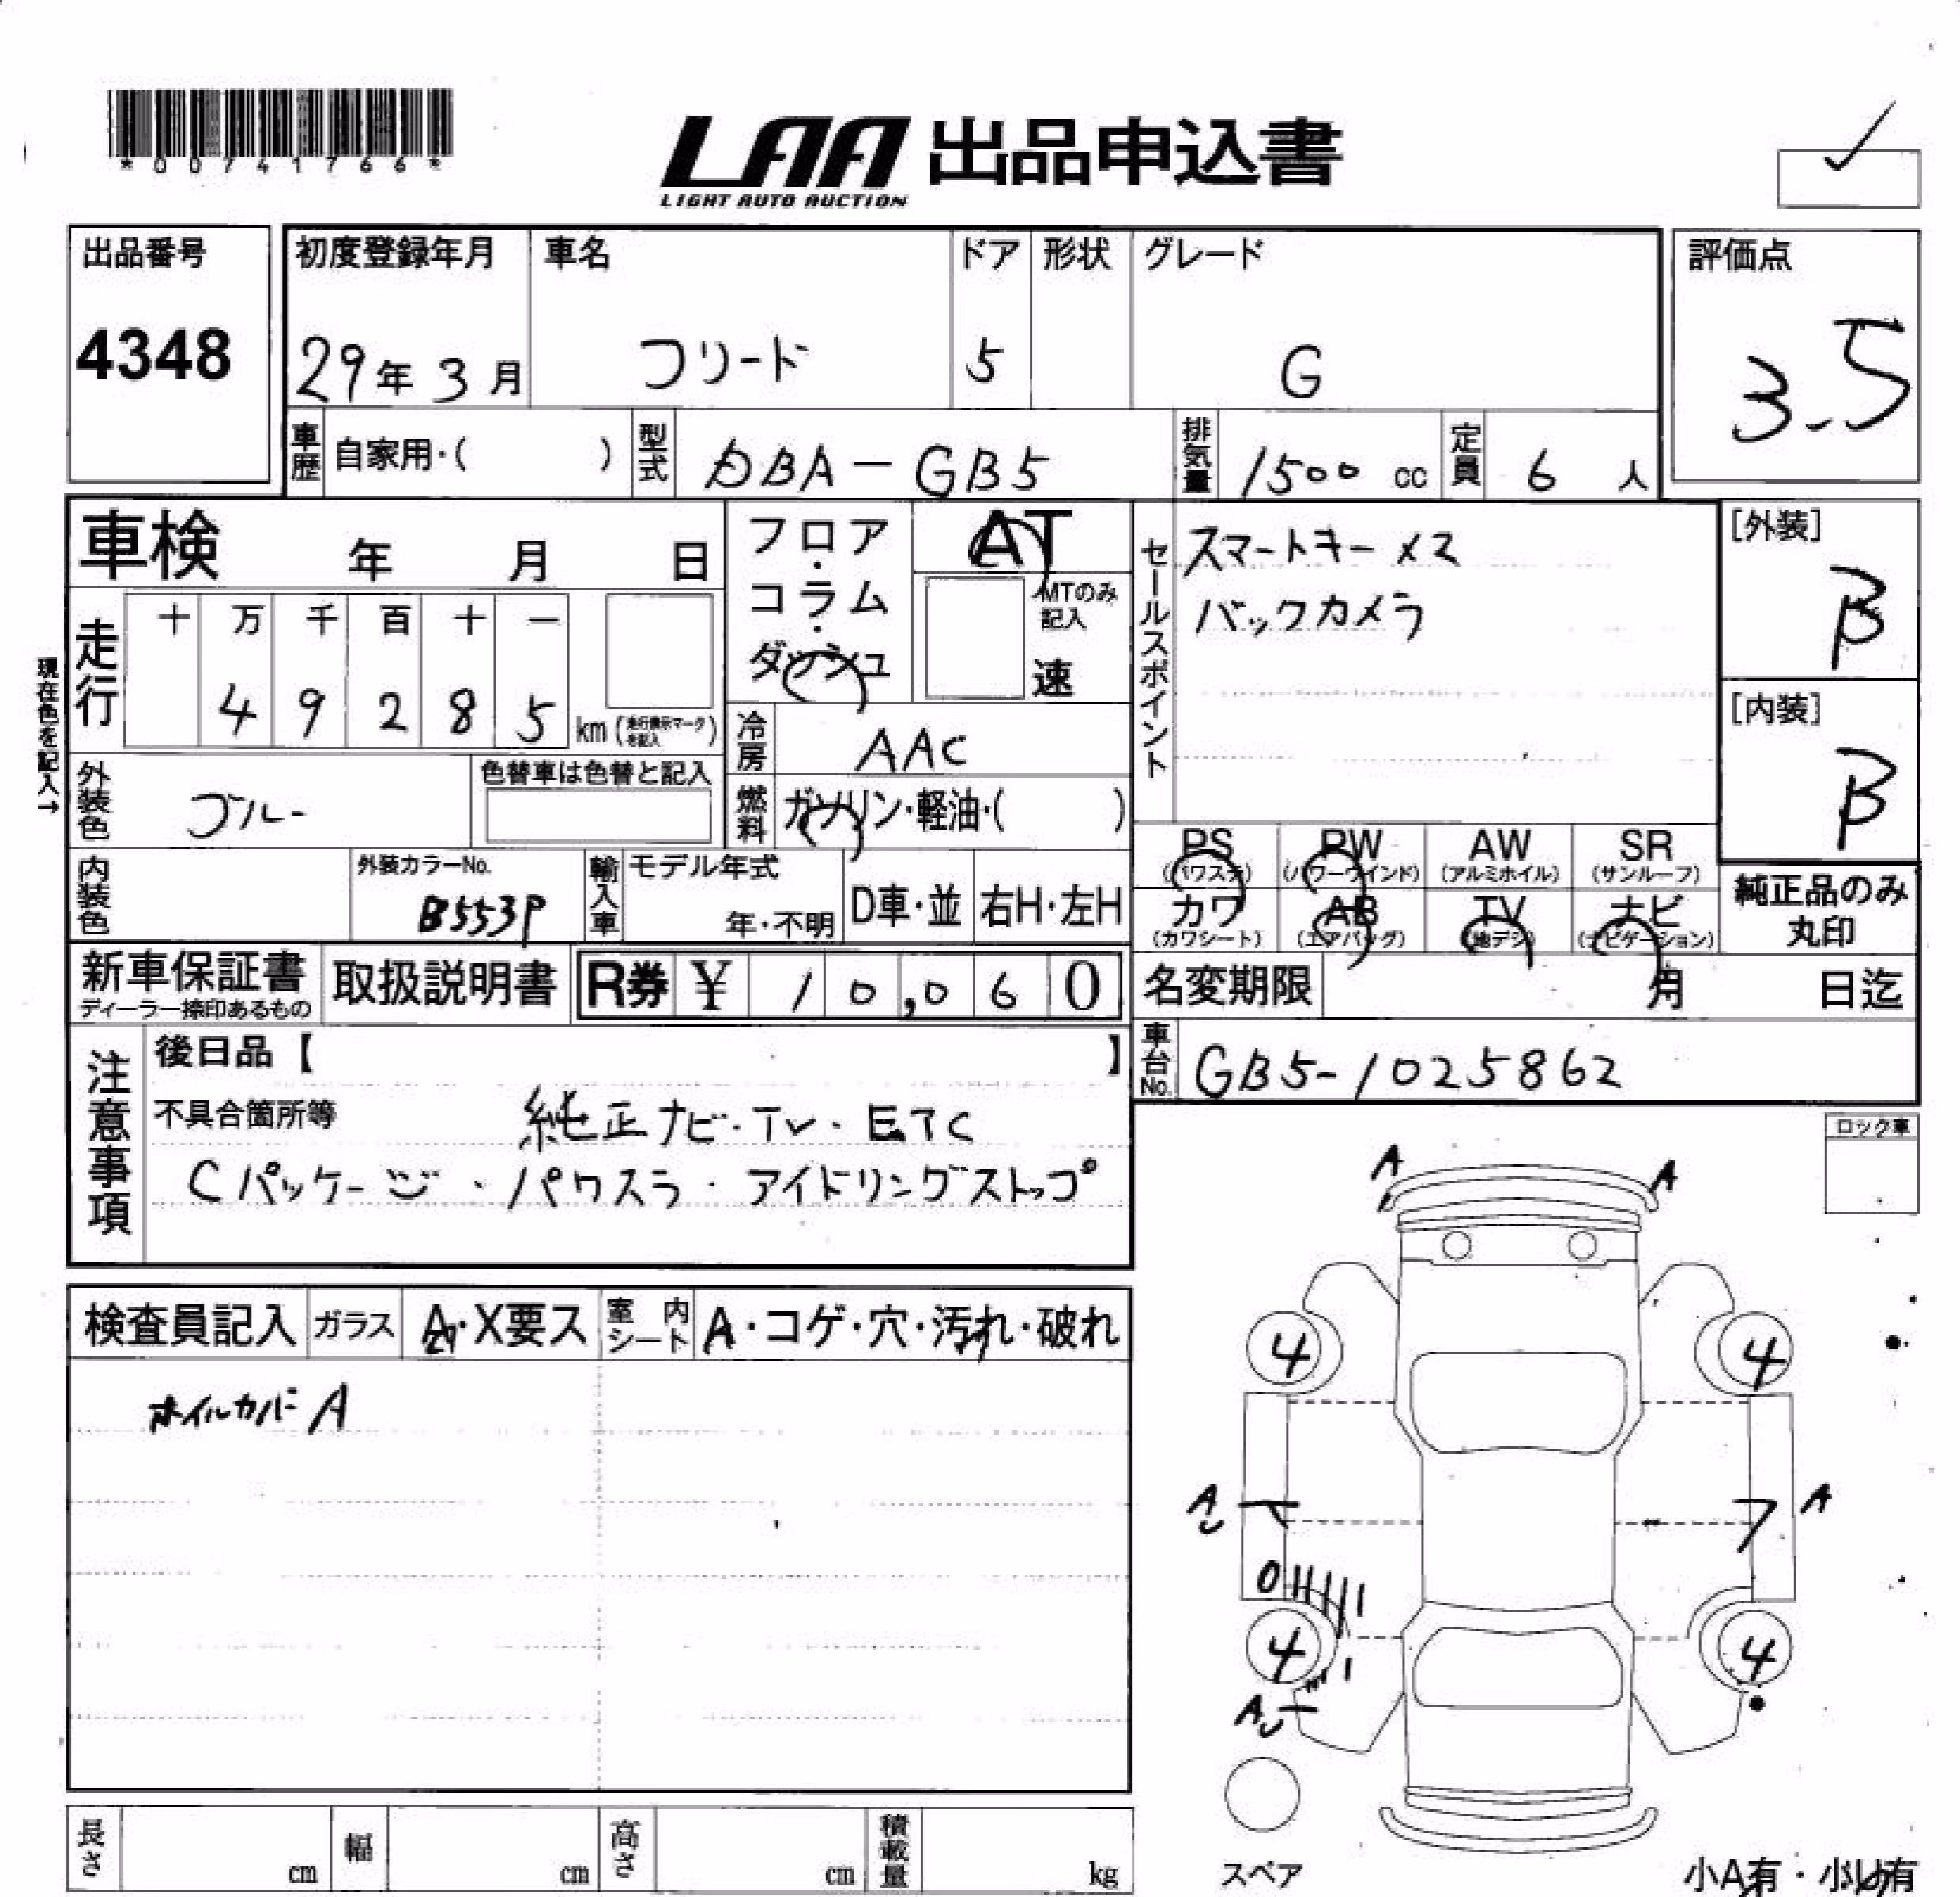 *00741766*
LAA 出品申込書
LIGHT AUTO AUCTION
出品番号 初度登録年月 車名 ドア 形状 グレード 評価点
4348 29年 3月 フリード 5 G 3.5
車歴 自家用・( ) 型式 DBA-GB5 排気量 1500 cc 定員 6 人
車検 年 月 日
フロア・コラム・ダッシュ
AT
MTのみ記入
速
セールスポイント
スマートキー
バックカメラ
[外装]
B
[内装]
B
現在色を記入→
走行 十 万 千 百 十 一
4 9 2 8 5 km (走行表示マークを記入)
冷房 AAC
外装色 ブルー 色替車は色替と記入
燃料 ガソリン・軽油・( )
内装色 外装カラーNo. B553P
輸入車 モデル年式 年・不明 D車・並 右H・左H
PS (パワステ) PW (パワーウインド) AW (アルミホイル) SR (サンルーフ)
カワ (カワシート) AB (エアバッグ) TV (地デジ) ナビ (ナビゲーション)
純正品のみ丸印
新車保証書 ディーラー捺印あるもの 取扱説明書 R券 ¥ 10,060
名変期限 月 日迄
車台No. GB5-1025862
注意事項
後日品【 】
不具合箇所等 純正ナビ・TV・ETC
Cパッケージ・パワスラ・アイドリングストップ
ロック車
検査員記入 ガラス A・X要ス 室内シート A・コゲ・穴・汚れ・破れ
ホイルカバーA
A A
4 4
A A
4 4
A
スペア
小A有・小U有
長さ cm 幅 cm 高さ cm 積載量 kg